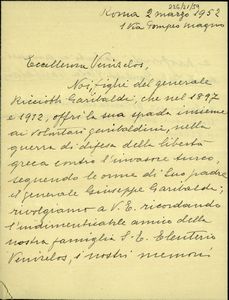 226/21/59
Roma 2 marzo 1952
1 Via Pompeo Magno
Eccellenza Venizelos,
Noi, figli del generale
Ricciotti Garibaldi, che nel 1897
e 1912, offrì la sua spada insieme
ai volontari garibaldini, nella
guerra di difesa della libertà
greca contro l'invasore turco,
seguendo le orme di Suo padre
il generale Giuseppe Garibaldi;
rivolgiamo a V. E. ricordando
l'indimenticabile amico della
nostra famiglia S. E. Elenterio
Venizelos, i nostri memori